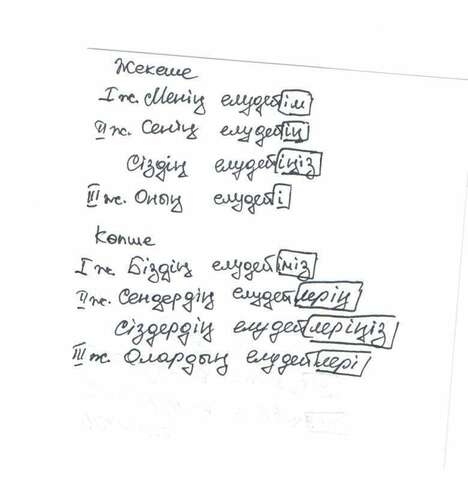 Жекеше
I ж. Менің елудей ім
II ж. Сенің елудей ің
Сіздің елудей іңіз
III ж. Оның елудей і
Көпше
I ж Біздің елудей іміз
II ж. Сендердің елудей лерің
Сіздердің елудей леріңіз
III ж Олардың елудей лері